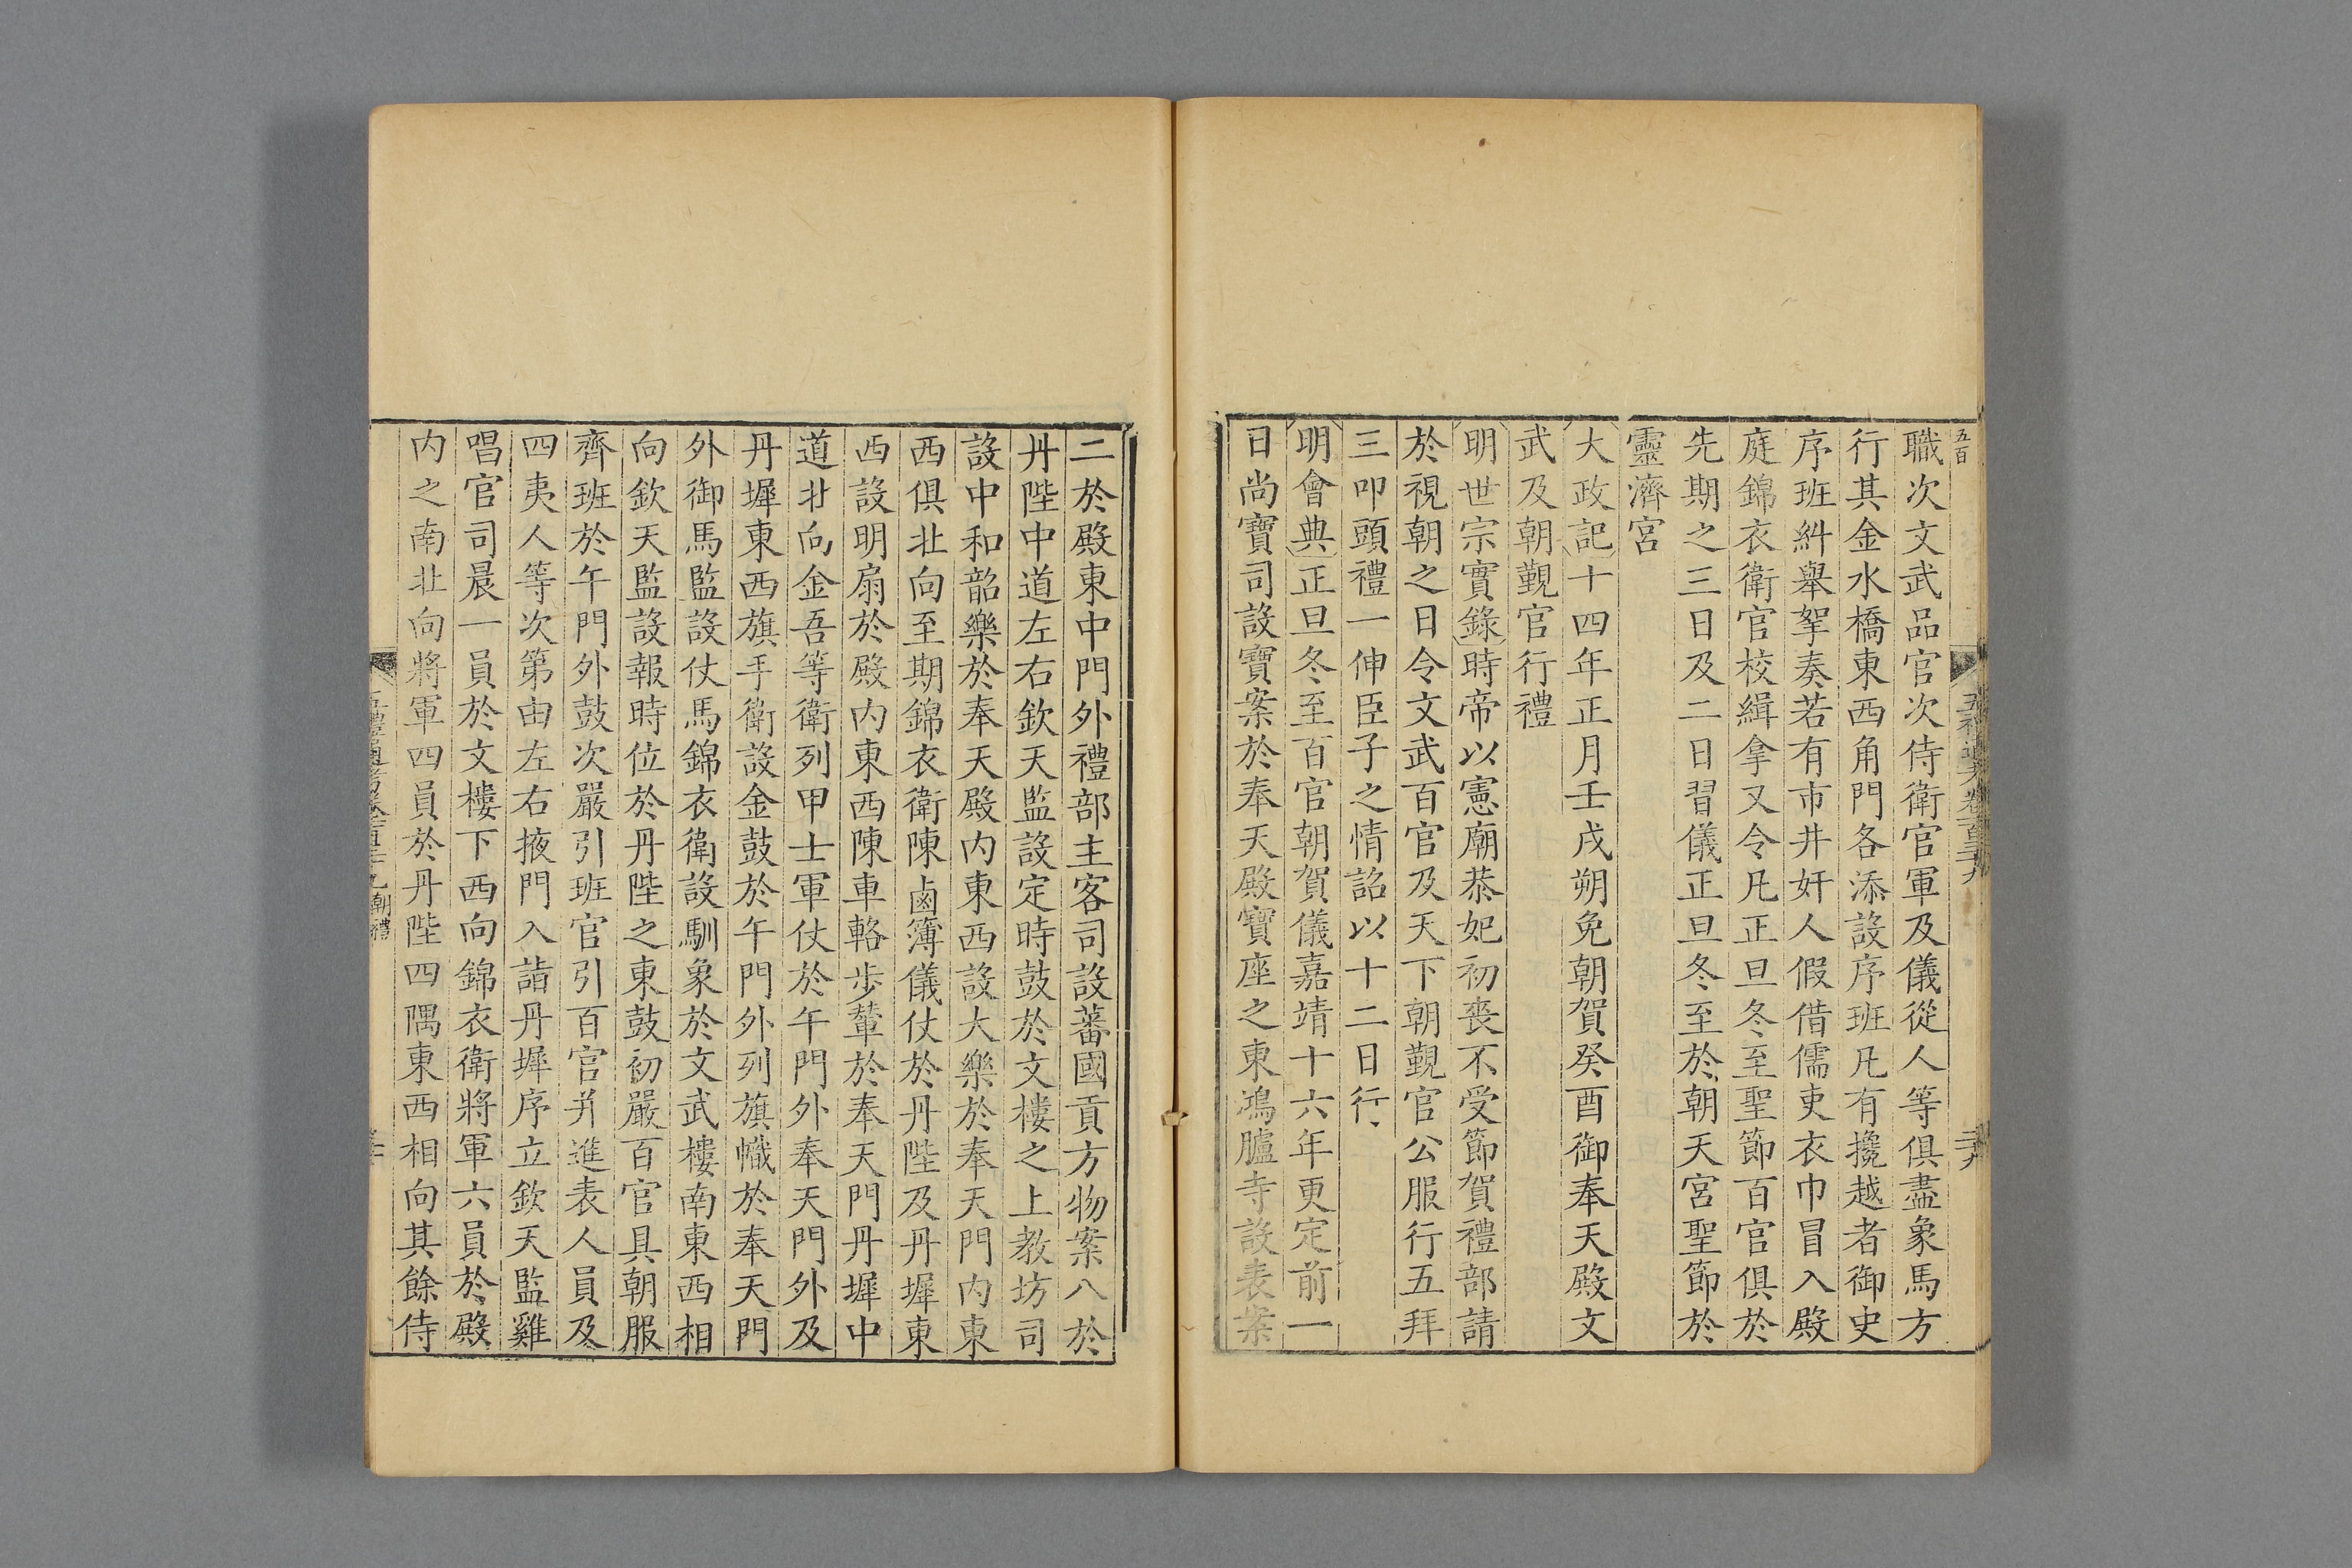 五百
職次文武品官次侍衛官軍及儀從人等俱盡象馬方
行其金水橋東西角門各添設序班凡有攙越者御史
序班糾舉挐奏若有市井奸人假借儒吏衣巾冒入殿
庭錦衣衛官校緝拿又令凡正旦冬至聖節百官俱於
先期之三日及二日習儀正旦冬至於朝天宮聖節於
靈濟宮
大政記十四年正月壬戌朔免朝賀癸酉御奉天殿文
武及朝覲官行禮
明世宗實錄時帝以憲廟恭妃初喪不受節賀禮部請
於視朝之日令文武百官及天下朝覲官公服行五拜
三叩頭禮一伸臣子之情詔以十二日行
明會典正旦冬至百官朝賀儀嘉靖十六年更定前一
日尚寶司設寶案於奉天殿寶座之東鴻臚寺設表案
二於殿東中門外禮部主客司設蕃國貢方物案八於
丹陛中道左右欽天監設定時鼓於文樓之上教坊司
設中和韶樂於奉天殿内東西設大樂於奉天門内東
西俱北向至期錦衣衛陳鹵簿儀仗於丹陛及丹墀東
西設明扇於殿内東西陳車輅步輦於奉天門丹墀中
道北向金吾等衛列甲士軍仗於午門外奉天門外及
丹墀東西旗手衛設金鼓於午門外列旗幟於奉天門
外御馬監設仗馬錦衣衛設馴象於文武樓南東西相
向欽天監設報時位於丹陛之東鼓初嚴百官具朝服
齊班於午門外鼓次嚴引班官引百官并進表人員及
四夷人等次第由左右掖門入詣丹墀序立欽天監雞
唱官司晨一員於文樓下西向錦衣衛將軍六員於殿
内之南北向將軍四員於丹陛四隅東西相向其餘侍